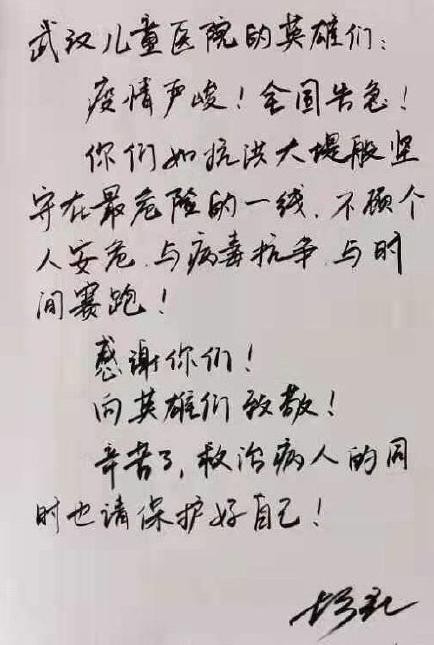 武汉儿童医院的英雄们：
疫情严峻！全国告急！
你们如抗洪大堤般坚
守在最危险的一线、不顾个
人安危、与病毒抗争、与时
间赛跑！
感谢你们！
向英雄们致敬！
辛苦了，救治病人的同
时也请保护好自己！